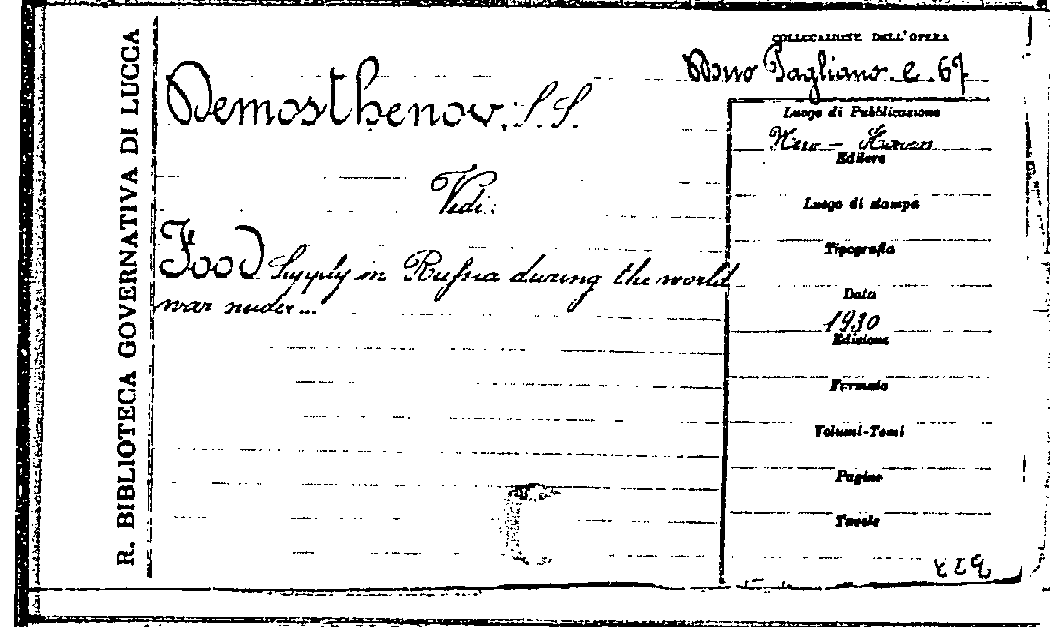 R. BIBLIOTECA GOVERNATIVA DI LUCCA
COLLOCAZIONE DELL'OPERA
Dono Pagliano e. 67
Demosthenov, S.S.
Vedi:
Food Supply in Russia during the world
war nuder...
Luogo di Pubblicazione
New - Haven
Editore
Luogo di stampa
Tipografia
Data
1930
Edizione
Formato
Volumi-Tomi
Pagine
Tavole